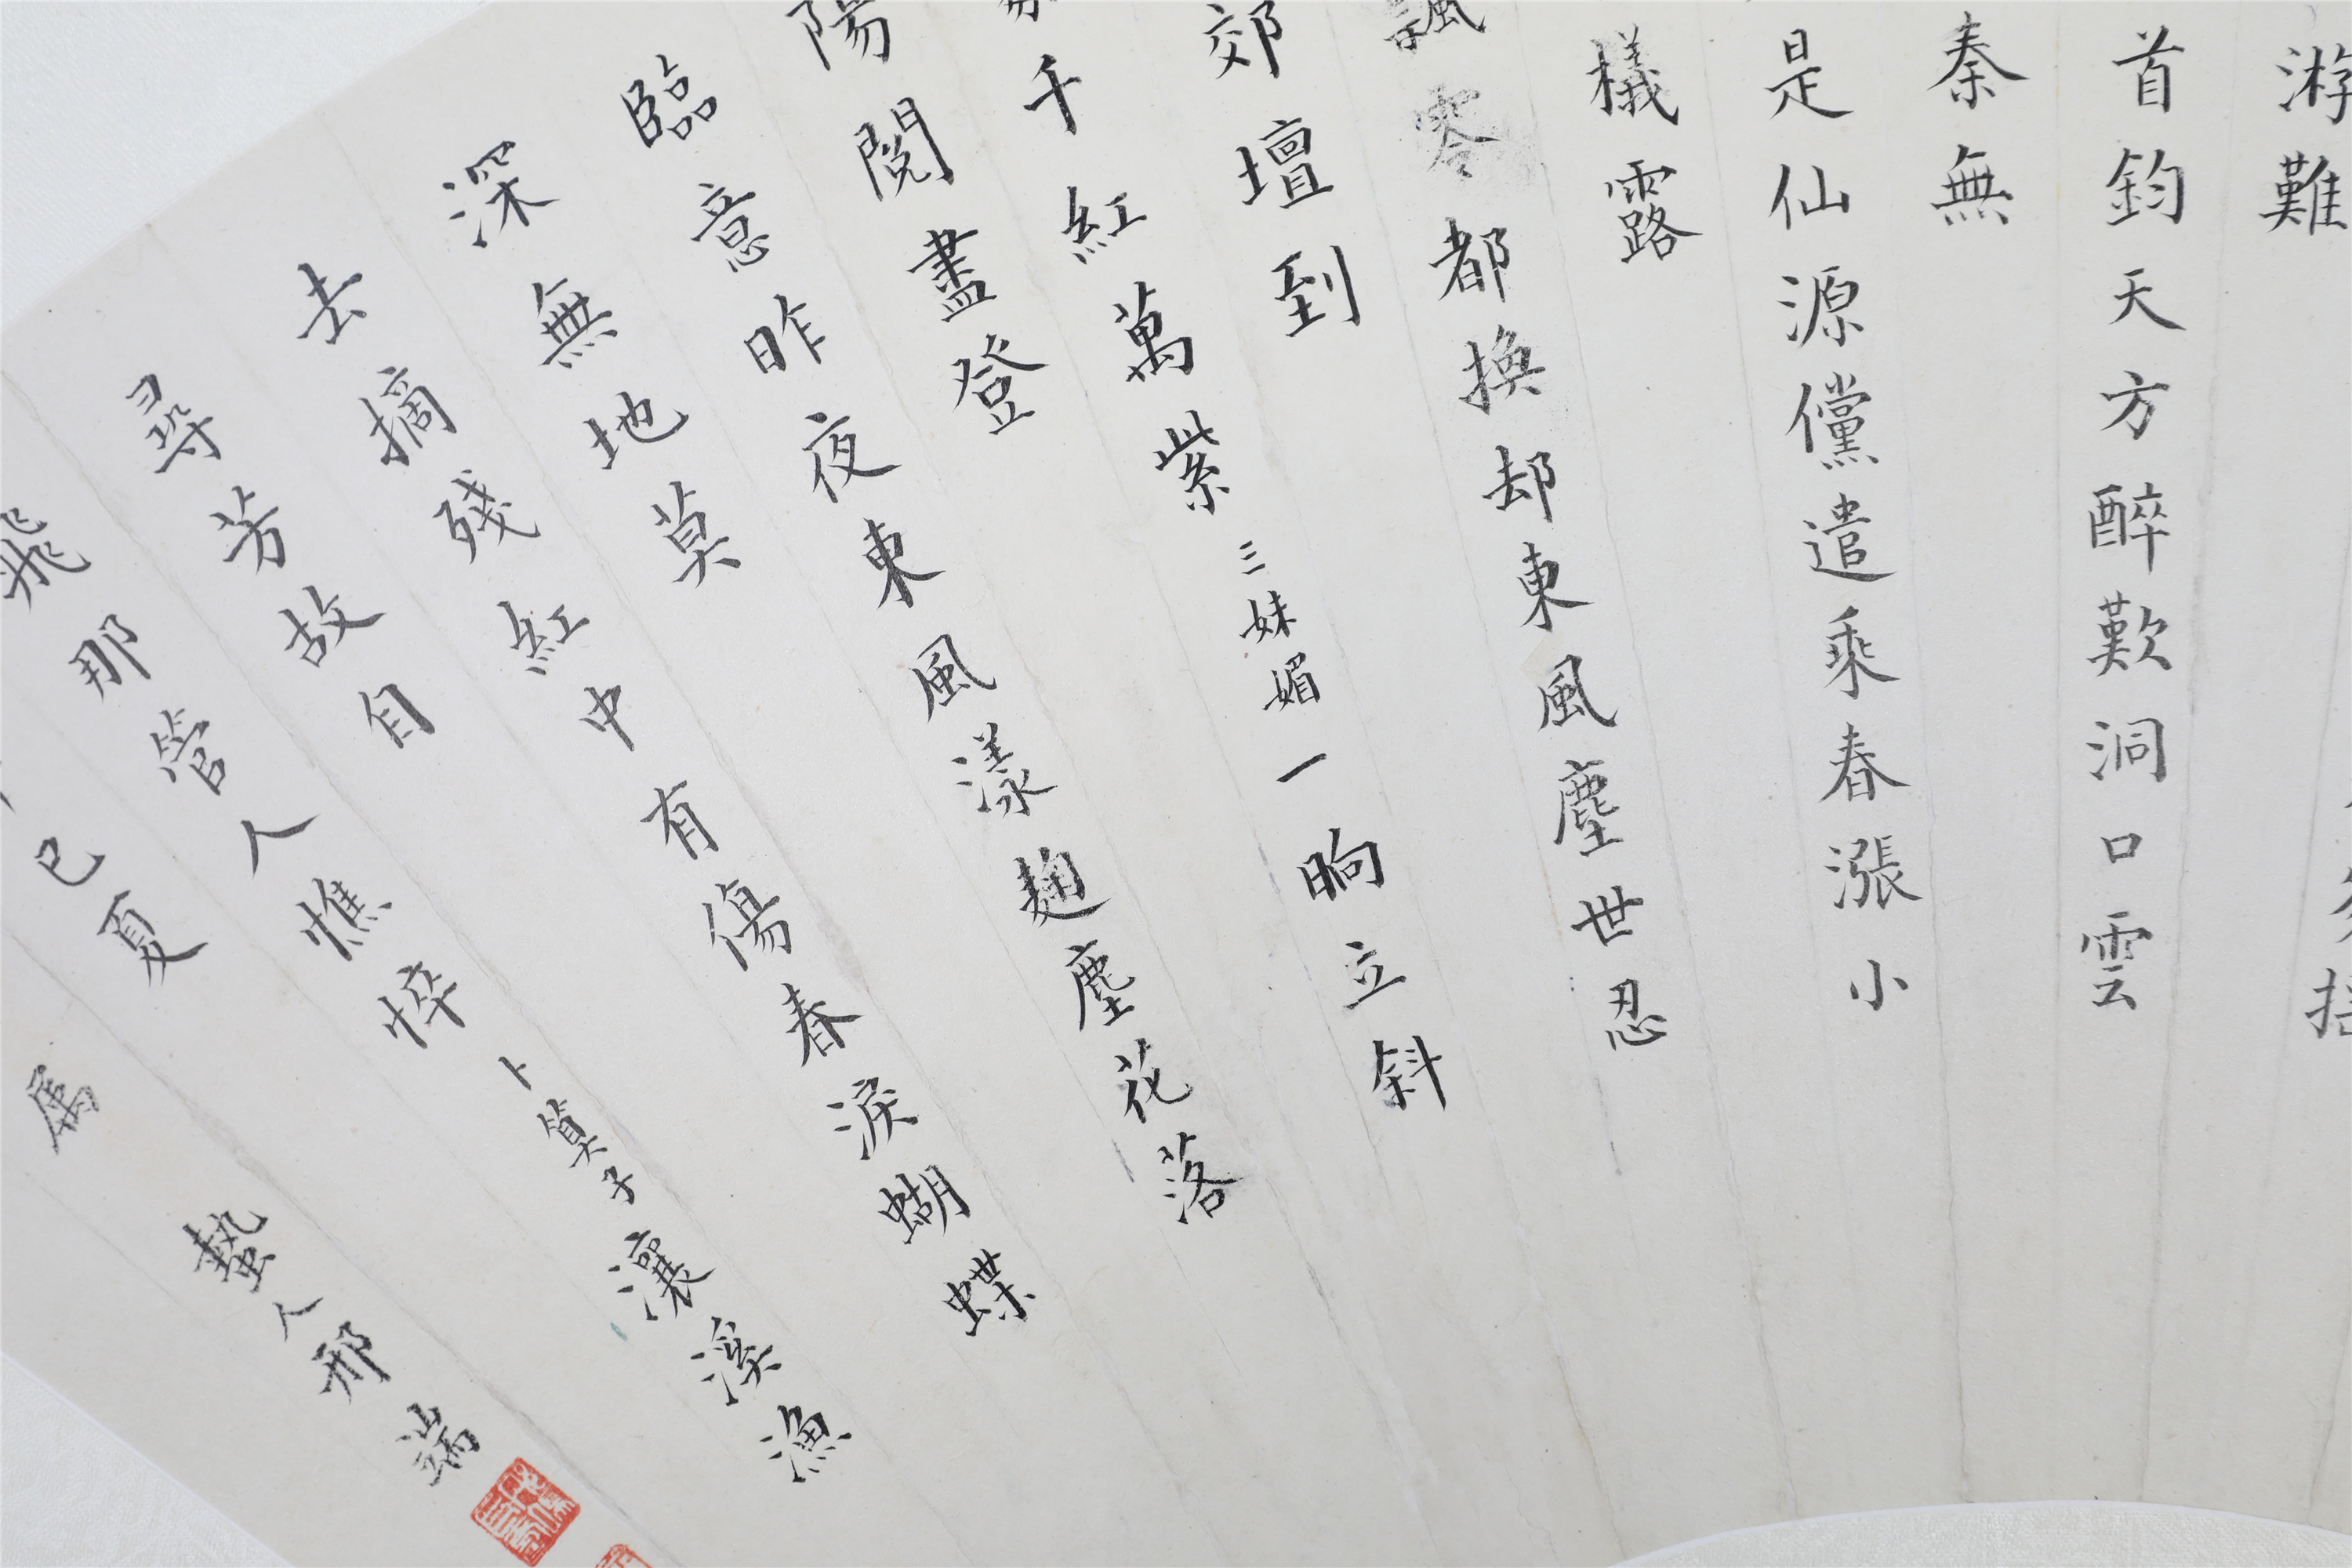 游難
首鈞天方醉歎洞口雲
秦無
是仙源儻遣乘春漲小
檥露
飄零都換却東風塵世忍
郊壇到
千紅萬紫三妹媚一晌立斜
陽閱盡登
臨意昨夜東風漾麯塵花落
深無地莫
去摘殘紅中有傷春淚蝴蝶
尋芳故自
飛那管人憔悴卜算子瀼溪漁
巳夏
属
蟄人邢端